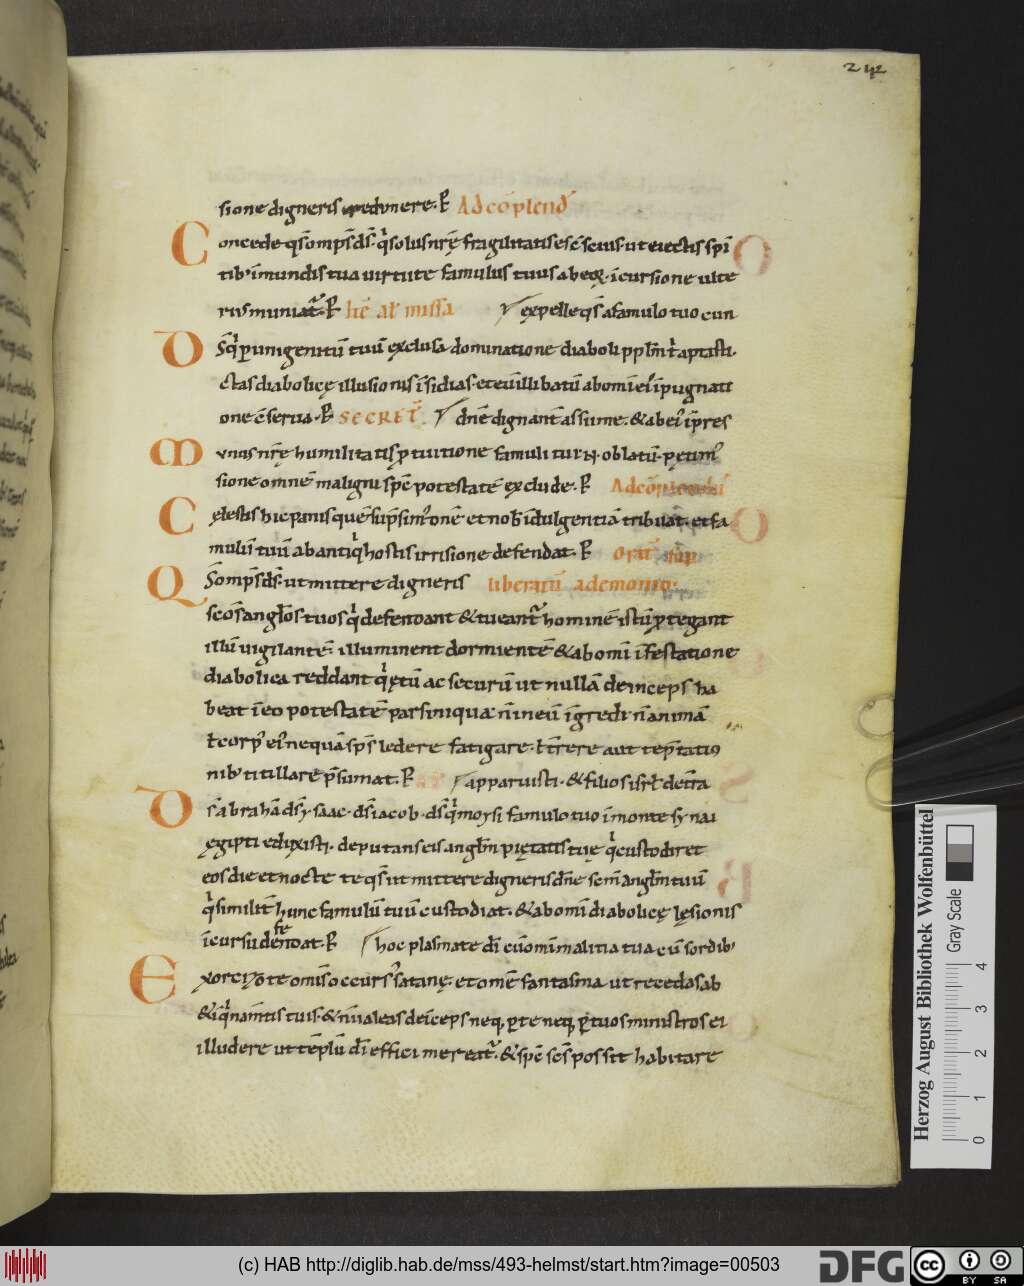 242
sione digneris expedi nere. P Ad cōplend
Concede qs omps ds. qi solus nrę fragilitatis esc scius. ut eiectis spi
tib' inmundis tua uirtute famulus tuus ab eoꝝ. incursione ulte
rius muniatr. P
missa expelle qs a famulo tuo cun
D sq p unigenitū tuū exclusa dominatione diaboli
ctas diabolicę illusionis insidias. et eū illibatū ab omi ei' inpugnati
one cserua. P SECRET. dne dignant assume. & ab ei'
Munus nrę humilitatis p tuitione famuli tui N. oblatū. petim'
sione omnē maligni spc potestatē exclude. P Ad cōplendū
Cęlestis hic panis quē supsim' dne et nob indulgentiā tribuat. et fa
mulū tuū ab antiqi hostis irrisione defendat. P
Qs omps ds. ut mittere digneris liberatū a demonio.
scos anglos tuos qi defendant & tueantr hominē istū ptegant
illū uigilantē. illuminent dormientē & ab omi infestatione
diabolica reddant qiętū ac securū ut nullā deinceps ha
beat in eo potestatē pars iniqua. n in eū ingredi n animā
t corp' ei' nequā sps ledere fatigare. t trere aut teptatio
nib' titillare psumat. P apparuisti. & filios isrl de tra
Ds abrahā ds ysaac. ds iacob. ds qi moysi famulo tuo in monte synai
ęgipti eduxisti. deputans eis anglm pietatis tuę qi custodiret
eos die et nocte te qs ut mittere digneris dne scm anglm tuū
qi similit hunc famulū tuū custodiat. & ab omi diabolicę lęsionis
incursu defendat. P hoc plasmate di cū omi malitia tua cū sordib'
Exorcizo te omis occurs' satanę. et omē fantasma ut recedas ab
& inqinamtis tuis. & n ualeas deinceps neq. p te neq. p tuos ministros ei
illudere ut teplū di effici mereatr. & sps scs possit habitare
Herzog August Bibliothek Wolfenbüttel
Gray Scale
0 1 2 3 4
(c) HAB http://diglib.hab.de/mss/493-helmst/start.htm?image=00503
DFG
cc BY SA